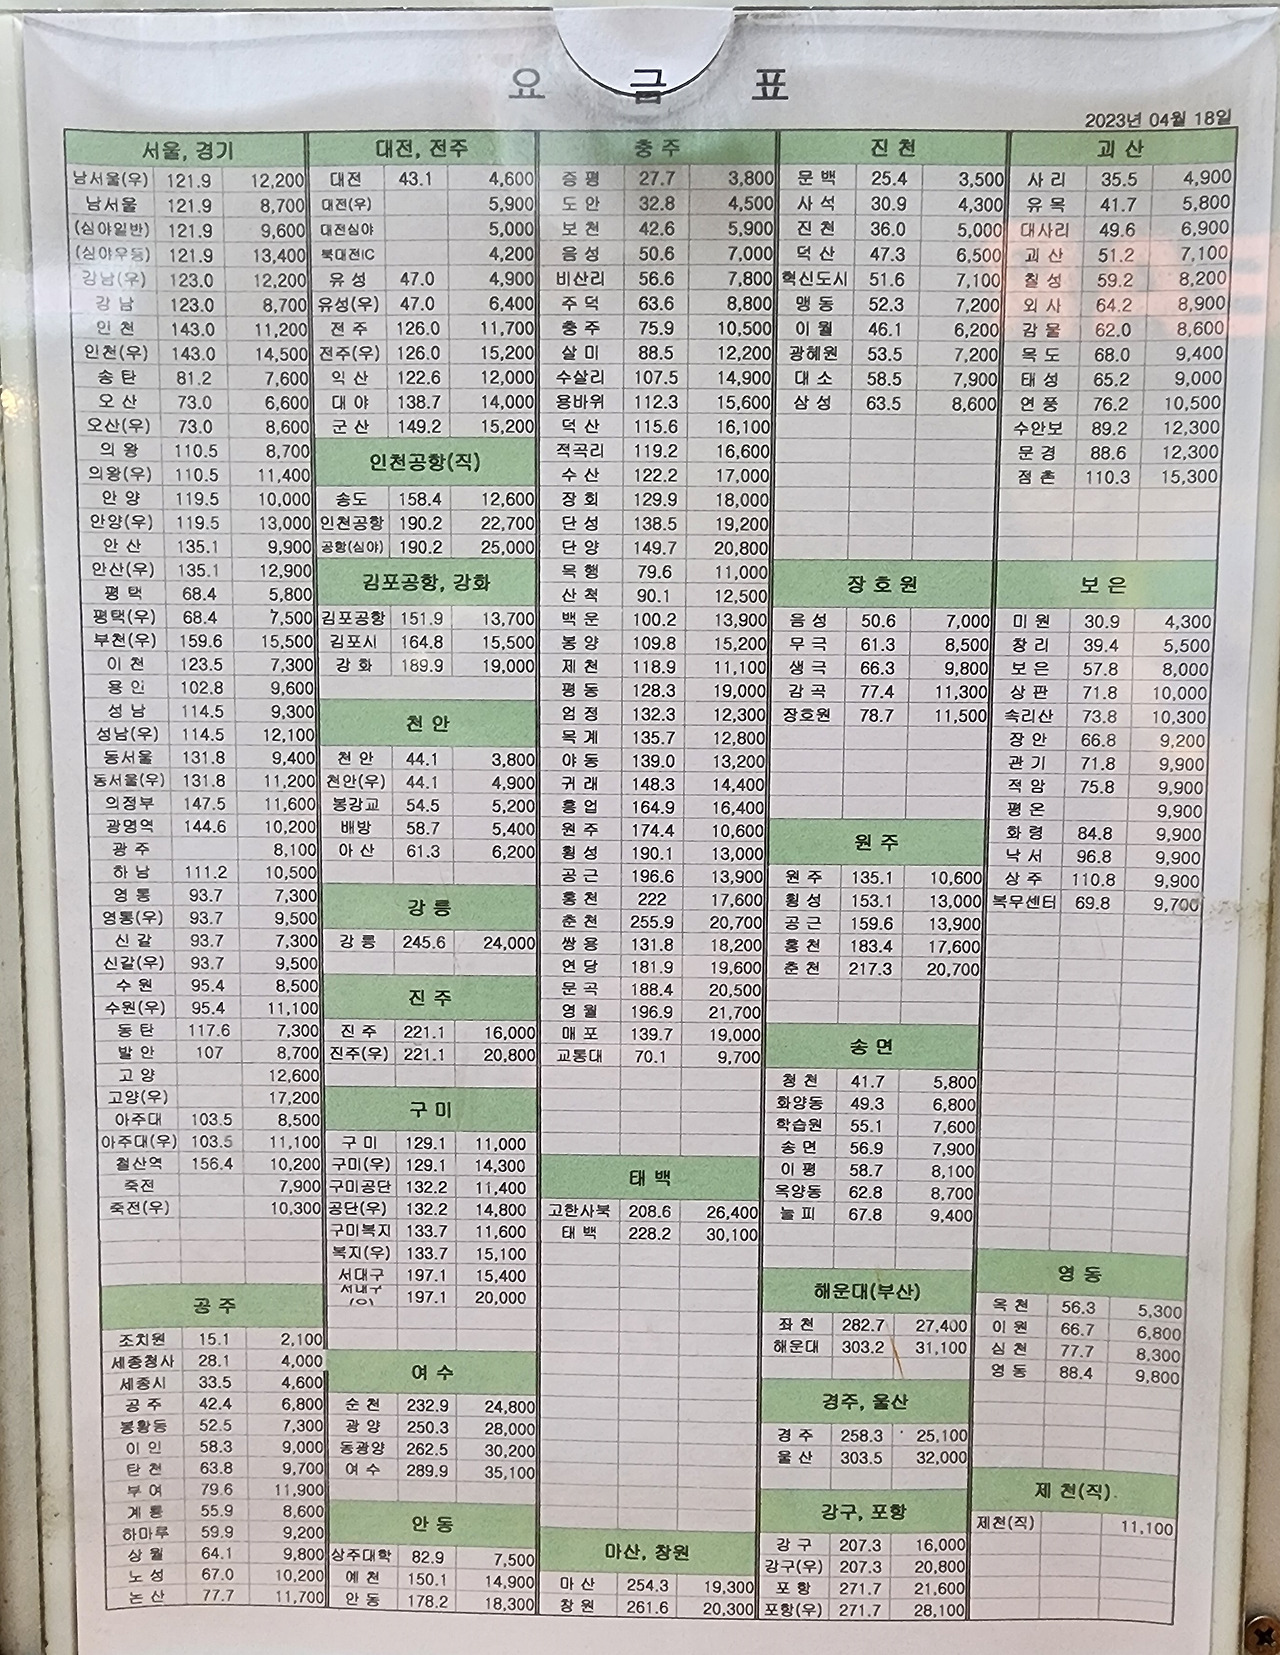 요 금 표
2023년 04월 18일
서울, 경기
남서울(우) 121.9 12,200
남서울 121.9 8,700
(심야일반) 121.9 9,600
(심야우등) 121.9 13,400
강남(우) 123.0 12,200
강 남 123.0 8,700
인 천 143.0 11,200
인천(우) 143.0 14,500
송 탄 81.2 7,600
오 산 73.0 6,600
오산(우) 73.0 8,600
의 왕 110.5 8,700
의왕(우) 110.5 11,400
안 양 119.5 10,000
안양(우) 119.5 13,000
안 산 135.1 9,900
안산(우) 135.1 12,900
평 택 68.4 5,800
평택(우) 68.4 7,500
부천(우) 159.6 15,500
이 천 123.5 7,300
용 인 102.8 9,600
성 남 114.5 9,300
성남(우) 114.5 12,100
동서울 131.8 9,400
동서울(우) 131.8 11,200
의정부 147.5 11,600
광명역 144.6 10,200
광 주 8,100
하 남 111.2 10,500
영 통 93.7 7,300
영통(우) 93.7 9,500
신 갈 93.7 7,300
신갈(우) 93.7 9,500
수 원 95.4 8,500
수원(우) 95.4 11,100
동 탄 117.6 7,300
발 안 107 8,700
고 양 12,600
고양(우) 17,200
아주대 103.5 8,500
아주대(우) 103.5 11,100
철산역 156.4 10,200
죽전 7,900
죽전(우) 10,300
공 주
조치원 15.1 2,100
세종청사 28.1 4,000
세종시 33.5 4,600
공 주 42.4 6,800
봉황동 52.5 7,300
이 인 58.3 9,000
탄 천 63.8 9,700
부 여 79.6 11,900
계 룡 55.9 8,600
하마루 59.9 9,200
상 월 64.1 9,800
노 성 67.0 10,200
논 산 77.7 11,700
대전, 전주
대전 43.1 4,600
대전(우) 5,900
대전심야 5,000
북대전IC 4,200
유 성 47.0 4,900
유성(우) 47.0 6,400
전 주 126.0 11,700
전주(우) 126.0 15,200
익 산 122.6 12,000
대 야 138.7 14,000
군 산 149.2 15,200
인천공항(직)
송도 158.4 12,600
인천공항 190.2 22,700
공항(심야) 190.2 25,000
김포공항, 강화
김포공항 151.9 13,700
김포시 164.8 15,500
강 화 189.9 19,000
천 안
천 안 44.1 3,800
천안(우) 44.1 4,900
봉강교 54.5 5,200
배방 58.7 5,400
아 산 61.3 6,200
강 릉
강 릉 245.6 24,000
진 주
진 주 221.1 16,000
진주(우) 221.1 20,800
구 미
구 미 129.1 11,000
구미(우) 129.1 14,300
구미공단 132.2 11,400
공단(우) 132.2 14,800
구미복지 133.7 11,600
복지(우) 133.7 15,100
서대구 197.1 15,400
서대구
(우) 197.1 20,000
여 수
순 천 232.9 24,800
광 양 250.3 28,000
동광양 262.5 30,200
여 수 289.9 35,100
안 동
상주대학 82.9 7,500
예 천 150.1 14,900
안 동 178.2 18,300
충 주
증 평 27.7 3,800
도 안 32.8 4,500
보 천 42.6 5,900
음 성 50.6 7,000
비산리 56.6 7,800
주 덕 63.6 8,800
충 주 75.9 10,500
살 미 88.5 12,200
수살리 107.5 14,900
용바위 112.3 15,600
덕 산 115.6 16,100
적곡리 119.2 16,600
수 산 122.2 17,000
장 회 129.9 18,000
단 성 138.5 19,200
단 양 149.7 20,800
목 행 79.6 11,000
산 척 90.1 12,500
백 운 100.2 13,900
봉 양 109.8 15,200
제 천 118.9 11,100
평 동 128.3 19,000
엄 정 132.3 12,300
목 계 135.7 12,800
야 동 139.0 13,200
귀 래 148.3 14,400
흥 업 164.9 16,400
원 주 174.4 10,600
횡 성 190.1 13,000
공 근 196.6 13,900
홍 천 222 17,600
춘 천 255.9 20,700
쌍 용 131.8 18,200
연 당 181.9 19,600
문 곡 188.4 20,500
영 월 196.9 21,700
매 포 139.7 19,000
교통대 70.1 9,700
태 백
고한사북 208.6 26,400
태 백 228.2 30,100
마산, 창원
마 산 254.3 19,300
창 원 261.6 20,300
진 천
문 백 25.4 3,500
사 석 30.9 4,300
진 천 36.0 5,000
덕 산 47.3 6,500
혁신도시 51.6 7,100
맹 동 52.3 7,200
이 월 46.1 6,200
광혜원 53.5 7,200
대 소 58.5 7,900
삼 성 63.5 8,600
장 호 원
음 성 50.6 7,000
무 극 61.3 8,500
생 극 66.3 9,800
감 곡 77.4 11,300
장호원 78.7 11,500
원 주
원 주 135.1 10,600
횡 성 153.1 13,000
공 근 159.6 13,900
홍 천 183.4 17,600
춘 천 217.3 20,700
송 면
청 천 41.7 5,800
화양동 49.3 6,800
학습원 55.1 7,600
송 면 56.9 7,900
이 평 58.7 8,100
옥양동 62.8 8,700
늘 피 67.8 9,400
해운대(부산)
좌 천 282.7 27,400
해운대 303.2 31,100
경주, 울산
경 주 258.3 25,100
울 산 303.5 32,000
강구, 포항
강 구 207.3 16,000
강구(우) 207.3 20,800
포 항 271.7 21,600
포항(우) 271.7 28,100
괴 산
사 리 35.5 4,900
유 목 41.7 5,800
대사리 49.6 6,900
괴 산 51.2 7,100
칠 성 59.2 8,200
외 사 64.2 8,900
감 물 62.0 8,600
목 도 68.0 9,400
태 성 65.2 9,000
연 풍 76.2 10,500
수안보 89.2 12,300
문 경 88.6 12,300
점 촌 110.3 15,300
보 은
미 원 30.9 4,300
창 리 39.4 5,500
보 은 57.8 8,000
상 판 71.8 10,000
속리산 73.8 10,300
장 안 66.8 9,200
관 기 71.8 9,900
적 암 75.8 9,900
평 온 9,900
화 령 84.8 9,900
낙 서 96.8 9,900
상 주 110.8 9,900
복무센터 69.8 9,700
영 동
옥 천 56.3 5,300
이 원 66.7 6,800
심 천 77.7 8,300
영 동 88.4 9,800
제 천(직).
제천(직) 11,100